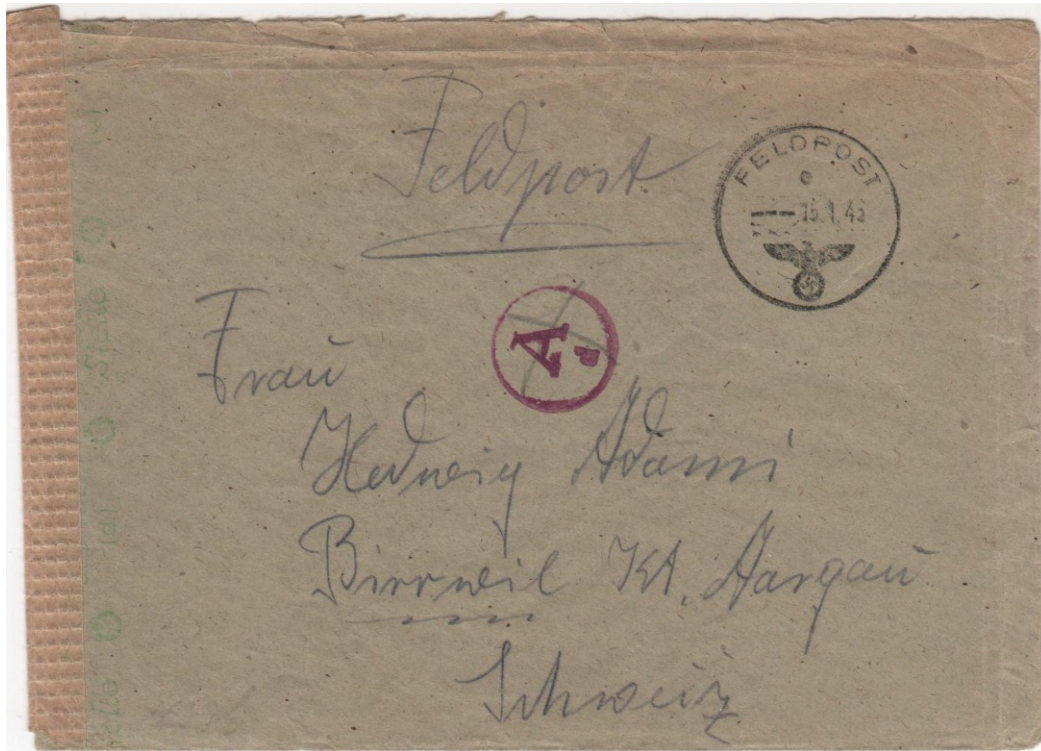 Feldpost
FELDPOST
e
15.1.43
A
d
Frau
Hedwig Adami
Birrwil Kt. Aargau
Schweiz